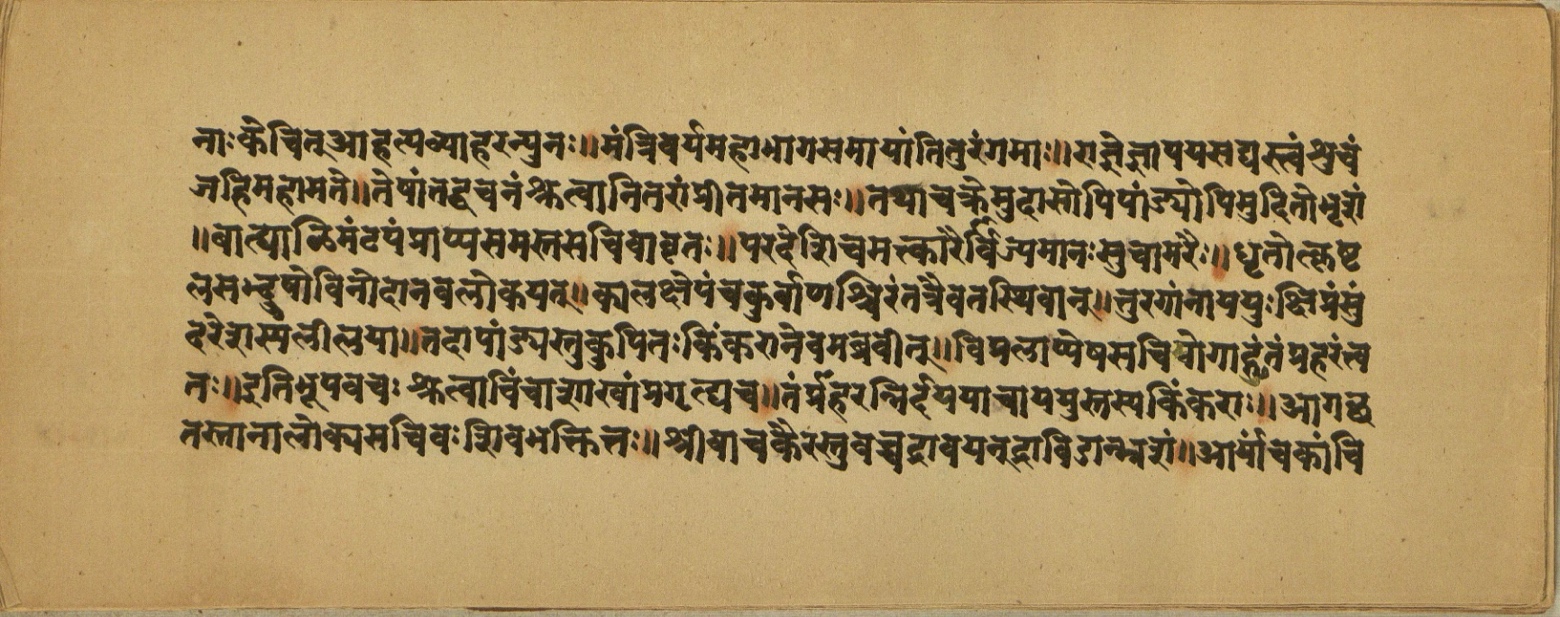 नाःकेचित्आहत्यव्याहरन्पुनः॥मंत्रिवर्यमहाभागसमायांतितुरंगमाः॥राज्ञेज्ञापयसद्यस्त्वंशुचं
जहिमहामते॥तेषांतद्वचनंश्रुत्वानितरांप्रीतमानसः॥तथाचक्रेमुदासोपिपांड्योपिमुदितोभृशं
॥बात्द्याळिमंटपंप्राप्यसमस्तसचिवावृतः॥परदेशिचमत्कारैर्विज्यमानःसुचामरैः॥धृतोत्कृष्ट
लसद्भूषोविनोदानवलोकयन्॥कालक्षेपंचकुर्वाणश्चिरंतत्रैवतस्थिवान्॥तुरगांनाययुःक्षिप्रंसुं
दरेशस्यलीलया॥तदापांड्यस्तुकुपितःकिंकरानेवमब्रवीत्॥विप्रलाप्येषसचिवोगाढंतंप्रहरंत्व
तः॥इतिभूपवचःश्रुत्वाचिंचाशाखांप्रगृत्द्यच॥तंप्रहरन्निर्दयया चापयुस्तस्यकिंकराः॥आगछ
तस्तानालोक्यसचिवःशिवभक्तितः॥श्रीवाचकैरस्तुवच्चद्रावयन्द्राविडान्भृशं॥आर्यांचकांचि